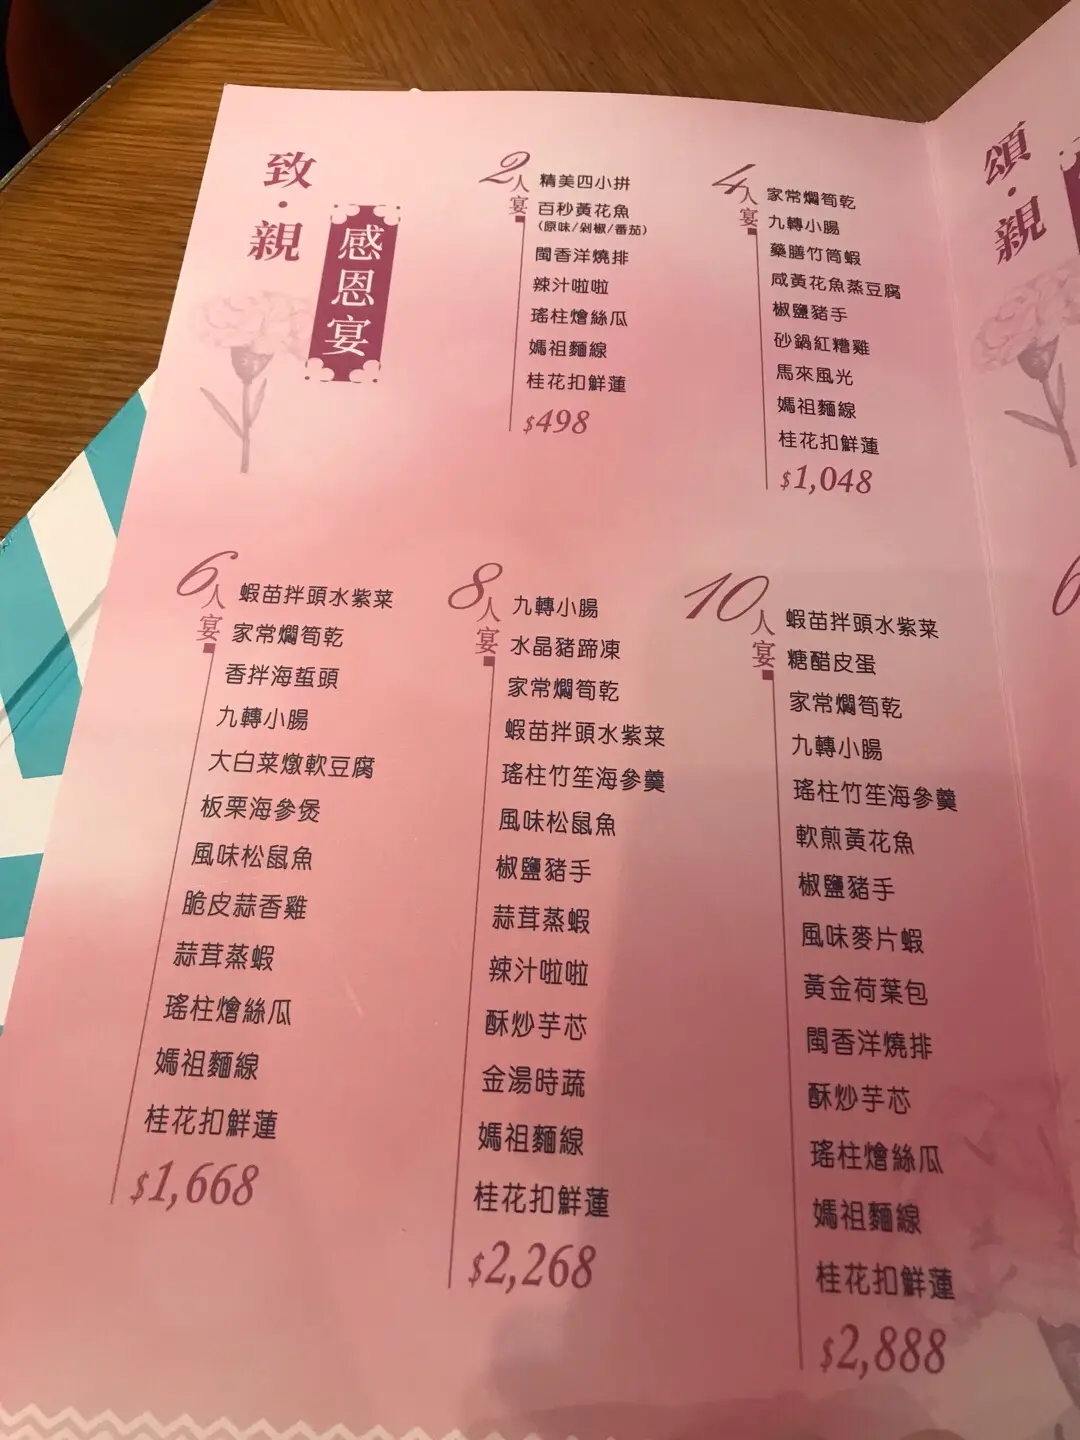 致·親
感恩宴
2人宴
精美四小拼
百秒黃花魚
(原味/剁椒/番茄)
閩香洋燒排
辣汁啦啦
瑤柱燴絲瓜
媽祖麵線
桂花扣鮮蓮
$498
4人宴
家常燜筍乾
九轉小腸
藥膳竹筒蝦
咸黃花魚蒸豆腐
椒鹽豬手
砂鍋紅糟雞
馬來風光
媽祖麵線
桂花扣鮮蓮
$1,048
6人宴
蝦苗拌頭水紫菜
家常燜筍乾
香拌海蜇頭
九轉小腸
大白菜燉軟豆腐
板栗海參煲
風味松鼠魚
脆皮蒜香雞
蒜茸蒸蝦
瑤柱燴絲瓜
媽祖麵線
桂花扣鮮蓮
$1,668
8人宴
九轉小腸
水晶豬蹄凍
家常燜筍乾
蝦苗拌頭水紫菜
瑤柱竹笙海參羹
風味松鼠魚
椒鹽豬手
蒜茸蒸蝦
辣汁啦啦
酥炒芋芯
金湯時蔬
媽祖麵線
桂花扣鮮蓮
$2,268
10人宴
蝦苗拌頭水紫菜
糖醋皮蛋
家常燜筍乾
九轉小腸
瑤柱竹笙海參羹
軟煎黃花魚
椒鹽豬手
風味麥片蝦
黃金荷葉包
閩香洋燒排
酥炒芋芯
瑤柱燴絲瓜
媽祖麵線
桂花扣鮮蓮
$2,888
頌·親
6